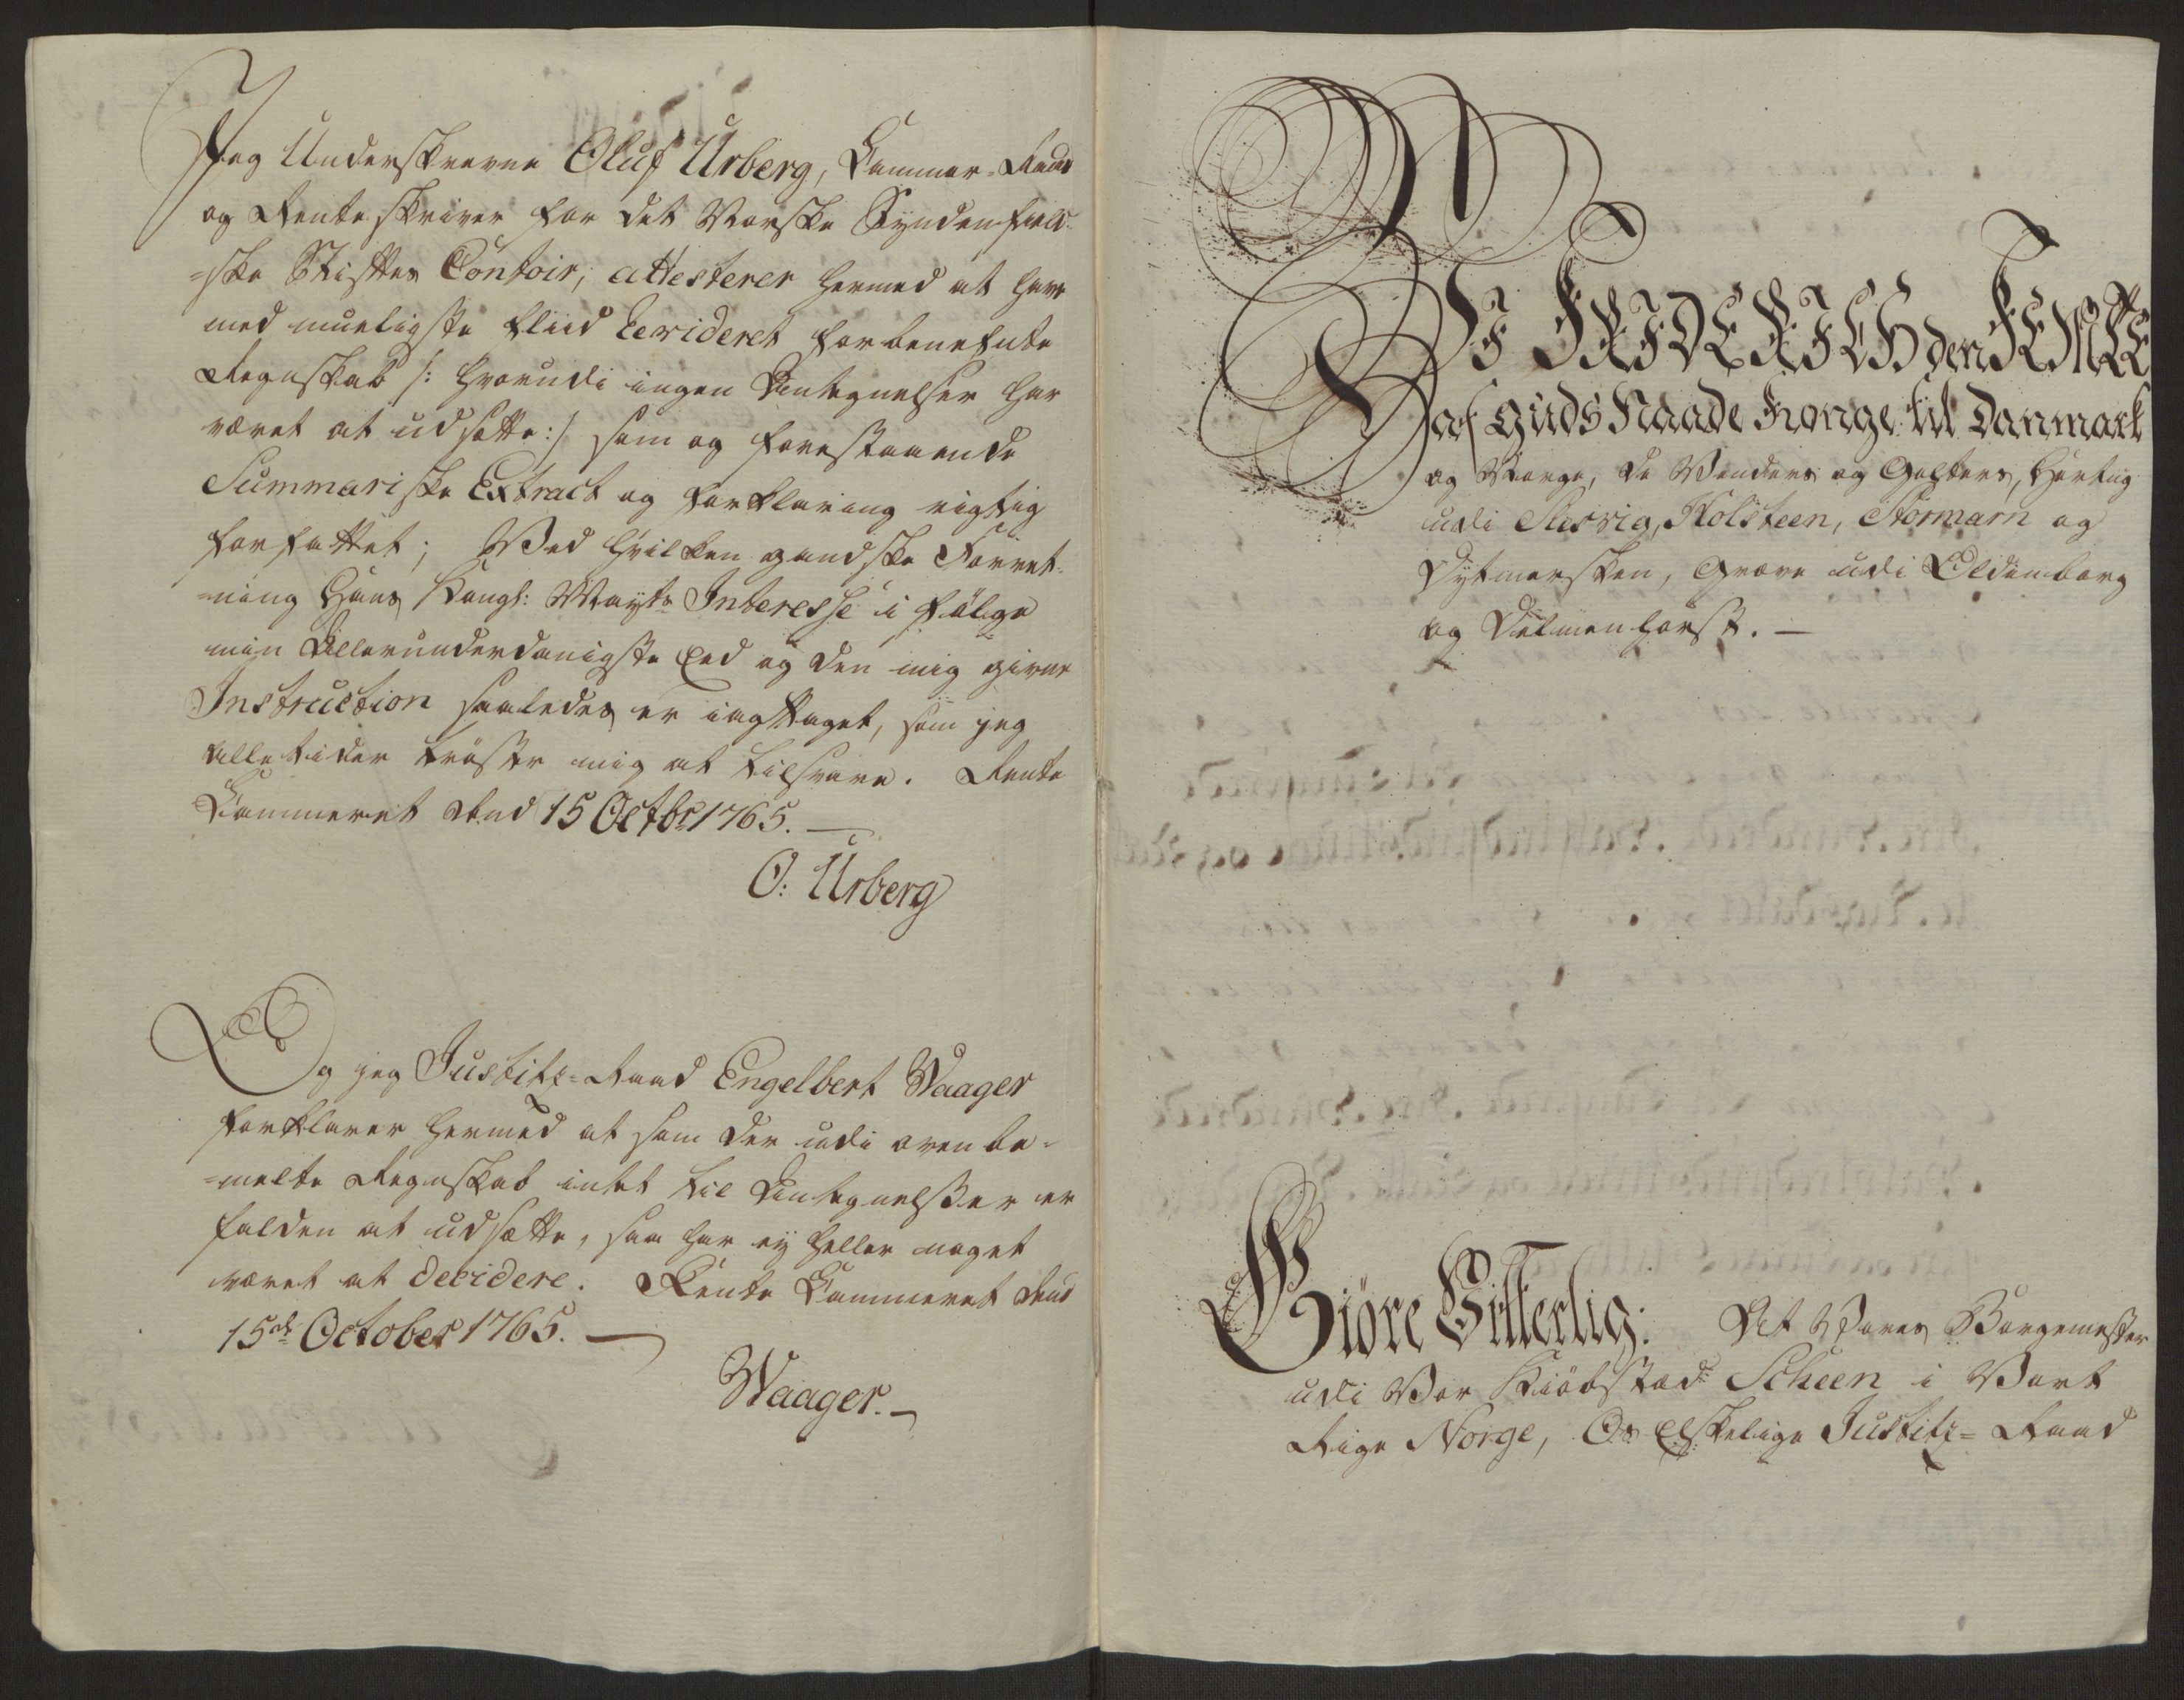 Jeg Underskrevne Oluf Urberg, Cammer-Raad
og Renteskriver for det Norske Syndenfield-
=ske Stifters Contoir, attesterer hermed at have
med mueligste Fliid Revideret forbenefnte
Regnskab /: hvorudi ingen Antegnelser har
været at udsætte :/ som og forestaaende
Summariske Extract og Forklaring rigtig
forfattet; Ved hvilken gandske Forret-
=ning Hans Kongl: Mayts Interesse i følge
min Allerunderdanigste Eed og den mig givne
Instruction saaledes er iagttaget, som jeg
alle tider trøster mig at tilsvare. Rente
Cammeret dend 15 Octbr 1765. —
O: Urberg
Og jeg Justitz-Raad Engelbert Waager
forklarer hermed at som der udi oven be-
=melte Regnskab intet til Antegnelsser er
falden at udsætte, saa har ey heller noget
været at decidere. Rente Cammeret dend
15de October 1765. —
Waager. —
VI FRIDERICH den FEMTE
af Guds Naade Konge til Danmark
og Norge, de Venders og Gothers, Hertug
udi Slesvig, Holsteen, Stormarn og
Dytmersken, Greve udi Oldenborg
og Delmenhorst. —
Giöre Vitterlig: At Vores Borgemester
udi Vor Kiøbstæd Scheen i Vort
Rige Norge, Os Elskelige Justitz-Raad